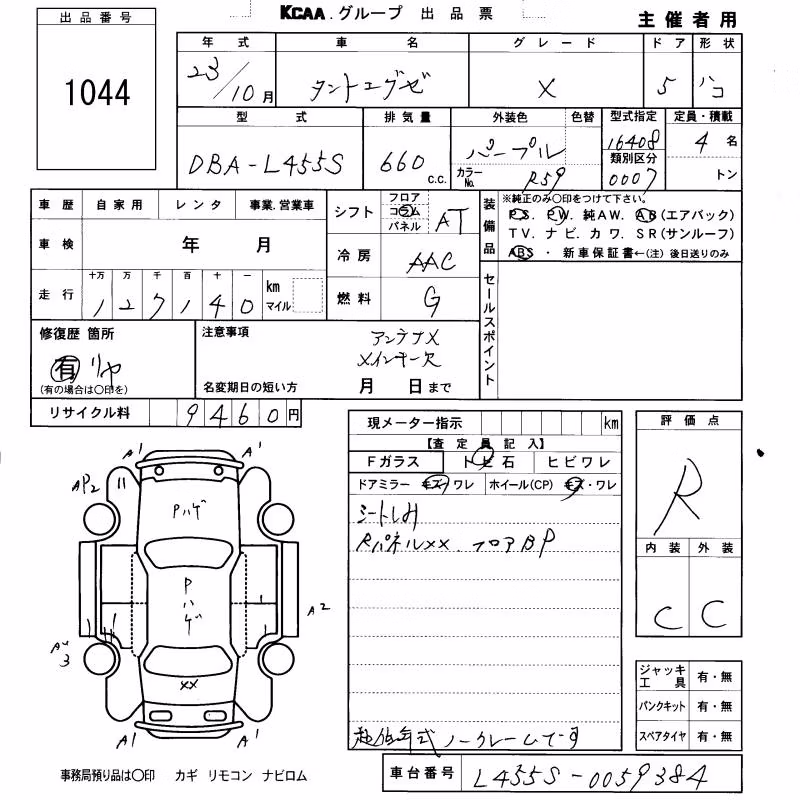 出品番号
1044
KCAA.グループ 出品票
主催者用
年式 車名 グレード ドア 形状
23/10月 タントエグゼ X 5 ハコ
型式 排気量 外装色 色替 型式指定 定員・積載
DBA-L455S 660 c.c. パープル 16408 4名
カラーNo. R59 類別区分 0007 トン
車歴 自家用 レンタ 事業.営業車
車検 年 月
走行 十万 万 千 百 十 一 km マイル
127140
シフト フロア コラム パネル AT
冷房 AAC
燃料 G
装備品
※純正のみ○印をつけて下さい。
P.S. P.W. 純AW. A.B(エアバック)
TV. ナビ. カワ. SR(サンルーフ)
ABS ・ 新車保証書←(注) 後日送りのみ
セールスポイント
修復歴 箇所
有 リヤ
(有の場合は○印を)
注意事項
アンテナX
メインキー欠
名変期日の短い方 月 日まで
リサイクル料 9460円
現メーター指示 km
【査定員記入】
Fガラス トビ石 ヒビワレ
ドアミラー キズ ワレ ホイール(CP) キズ・ワレ
シートしみ
Rパネルxx. フロアBP
年式ノークレームです
評価点
R
内装 外装
C C
ジャッキ工具 有・無
パンクキット 有・無
スペアタイヤ 有・無
車台番号 L455S-0059384
A1 A1
AP2
Pハゲ
Pハゲ
A2
3
xx
A1 A1
事務局預り品は○印 カギ リモコン ナビロム